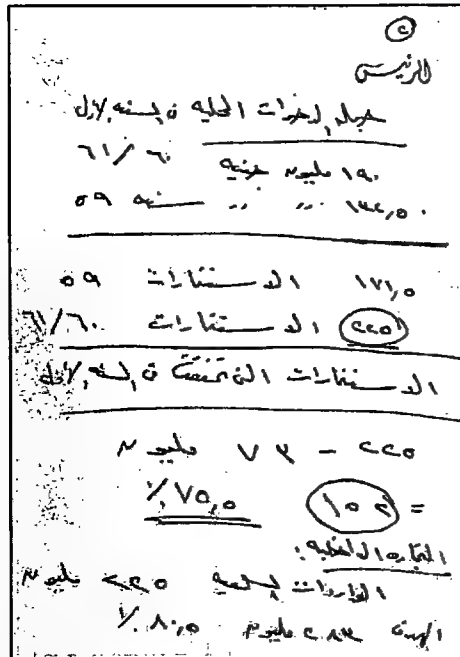 ٢
الرئيس
جملة المدخرات المحلية في السنة الأولى
٦٠/٦١
١٩٠ مليون جنيه
١٣٤,٥٠ ,, ,, سنة ٥٩
١٧١,٥ الاستثمارات ٥٩
٢٢٥ الاستثمارات ٦٠/٦١
الاستثمارات التي تحققت في السنة الأولى
٢٢٥ - ٧٣ مليون
= ١٥٢ ٧٥,٥٪
التجارة الداخلية:
الواردات السلعية ٢٢٥ مليون
الهدف ٢٨٣ مليون ٨٠,٥٪